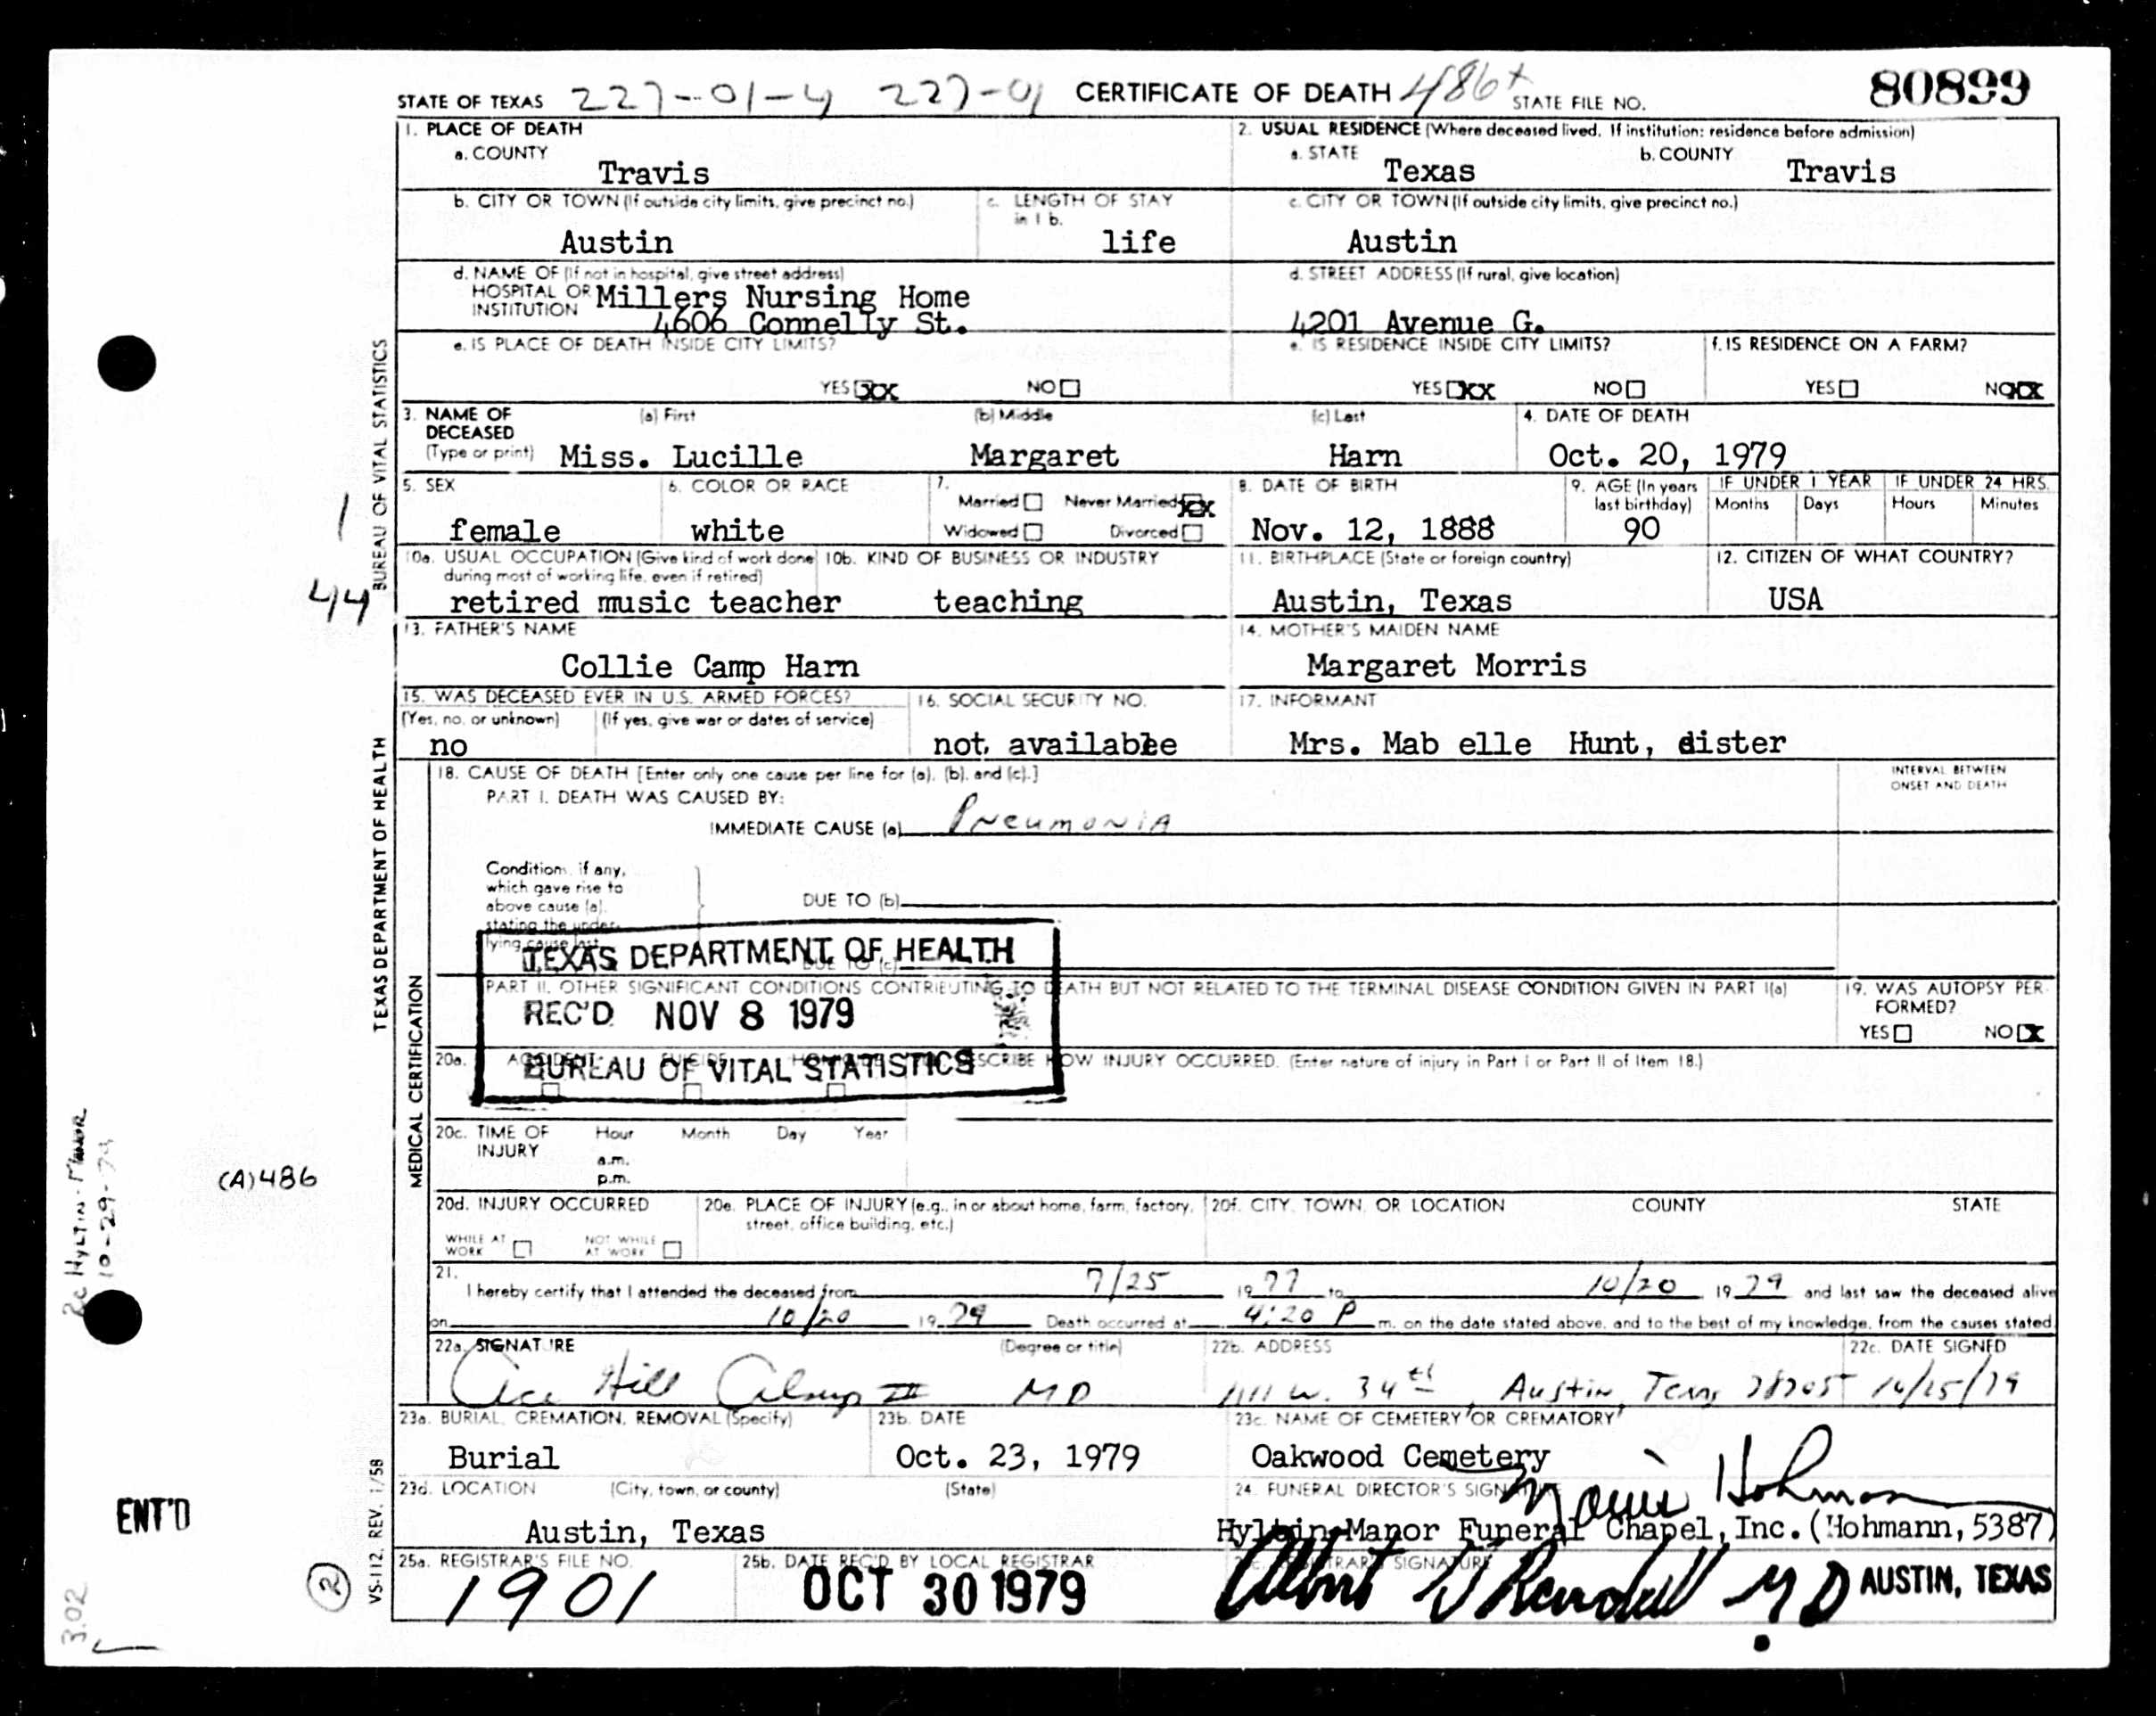 STATE OF TEXAS 227-01-4 227-01 CERTIFICATE OF DEATH 486+ STATE FILE NO. 80899
1. PLACE OF DEATH
a. COUNTY
Travis
2. USUAL RESIDENCE (Where deceased lived. If institution: residence before admission)
a. STATE
Texas
b. COUNTY
Travis
b. CITY OR TOWN (If outside city limits, give precinct no.)
Austin
c. LENGTH OF STAY in 1 b.
life
c. CITY OR TOWN (If outside city limits, give precinct no.)
Austin
d. NAME OF (If not in hospital, give street address)
HOSPITAL OR
INSTITUTION
Millers Nursing Home
4606 Connelly St.
d. STREET ADDRESS (If rural, give location)
4201 Avenue G.
e. IS PLACE OF DEATH INSIDE CITY LIMITS?
YES XX NO
e. IS RESIDENCE INSIDE CITY LIMITS?
YES XX NO
f. IS RESIDENCE ON A FARM?
YES NO XX
3. NAME OF
DECEASED
(Type or print)
(a) First (b) Middle (c) Last
Miss. Lucille Margaret Harn
4. DATE OF DEATH
Oct. 20, 1979
5. SEX
female
6. COLOR OR RACE
white
7.
Married Never Married XX
Widowed Divorced
8. DATE OF BIRTH
Nov. 12, 1888
9. AGE (In years
last birthday)
90
IF UNDER 1 YEAR
Months Days
IF UNDER 24 HRS.
Hours Minutes
10a. USUAL OCCUPATION (Give kind of work done
during most of working life, even if retired)
retired music teacher
10b. KIND OF BUSINESS OR INDUSTRY
teaching
11. BIRTHPLACE (State or foreign country)
Austin, Texas
12. CITIZEN OF WHAT COUNTRY?
USA
13. FATHER'S NAME
Collie Camp Harn
14. MOTHER'S MAIDEN NAME
Margaret Morris
15. WAS DECEASED EVER IN U.S. ARMED FORCES?
(Yes, no, or unknown) (If yes, give war or dates of service)
no
16. SOCIAL SECURITY NO.
not available
17. INFORMANT
Mrs. Mab elle Hunt, sister
18. CAUSE OF DEATH [Enter only one cause per line for (a), (b), and (c).]
PART I. DEATH WAS CAUSED BY:
IMMEDIATE CAUSE (a) Pneumonia
INTERVAL BETWEEN
ONSET AND DEATH
Conditions, if any,
which gave rise to
above cause (a),
stating the under-
lying cause last.
DUE TO (b)
DUE TO (c)
TEXAS DEPARTMENT OF HEALTH
REC'D NOV 8 1979
BUREAU OF VITAL STATISTICS
PART II. OTHER SIGNIFICANT CONDITIONS CONTRIBUTING TO DEATH BUT NOT RELATED TO THE TERMINAL DISEASE CONDITION GIVEN IN PART I(a)
19. WAS AUTOPSY PER-
FORMED?
YES NO X
20a. ACCIDENT SUICIDE
DESCRIBE HOW INJURY OCCURRED. (Enter nature of injury in Part I or Part II of Item 18.)
20c. TIME OF
INJURY
Hour Month Day Year
a.m.
p.m.
20d. INJURY OCCURRED
WHILE AT
WORK
NOT WHILE
AT WORK
20e. PLACE OF INJURY (e.g., in or about home, farm, factory,
street, office building, etc.)
20f. CITY, TOWN, OR LOCATION COUNTY STATE
21.
I hereby certify that I attended the deceased from 7/25 1977 to 10/20 1979 and last saw the deceased alive
on 10/20 1979 Death occurred at 4:20 P m. on the date stated above, and to the best of my knowledge, from the causes stated.
22a. SIGNATURE (Degree or title)
Hill Alsup III MD
22b. ADDRESS
1111 W. 34th, Austin, Texas 78705
22c. DATE SIGNED
10/25/79
23a. BURIAL, CREMATION, REMOVAL (Specify)
Burial
23b. DATE
Oct. 23, 1979
23c. NAME OF CEMETERY OR CREMATORY
Oakwood Cemetery
23d. LOCATION (City, town, or county) (State)
Austin, Texas
24. FUNERAL DIRECTOR'S SIGNATURE
Hohmann
Hyltin-Manor Funeral Chapel, Inc. (Hohmann, 5387)
25a. REGISTRAR'S FILE NO.
1901
25b. DATE REC'D BY LOCAL REGISTRAR
OCT 30 1979
REGISTRAR'S SIGNATURE
Albert Randall MD AUSTIN, TEXAS
BUREAU OF VITAL STATISTICS
TEXAS DEPARTMENT OF HEALTH
MEDICAL CERTIFICATION
VS-112, REV. 1/58
1
44
(A)486
Hyltin-Manor
10-29-79
ENT'D
2
3.02